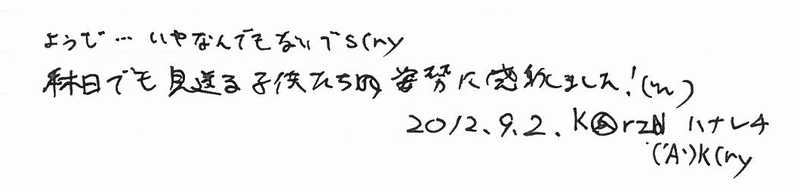 ようじ…いやなんでもないです(ry
休日でも見送る子供たちの姿勢に感動しました！(ry)
2012.9.2. K@rzN ハナレチ
('A`)K(ry